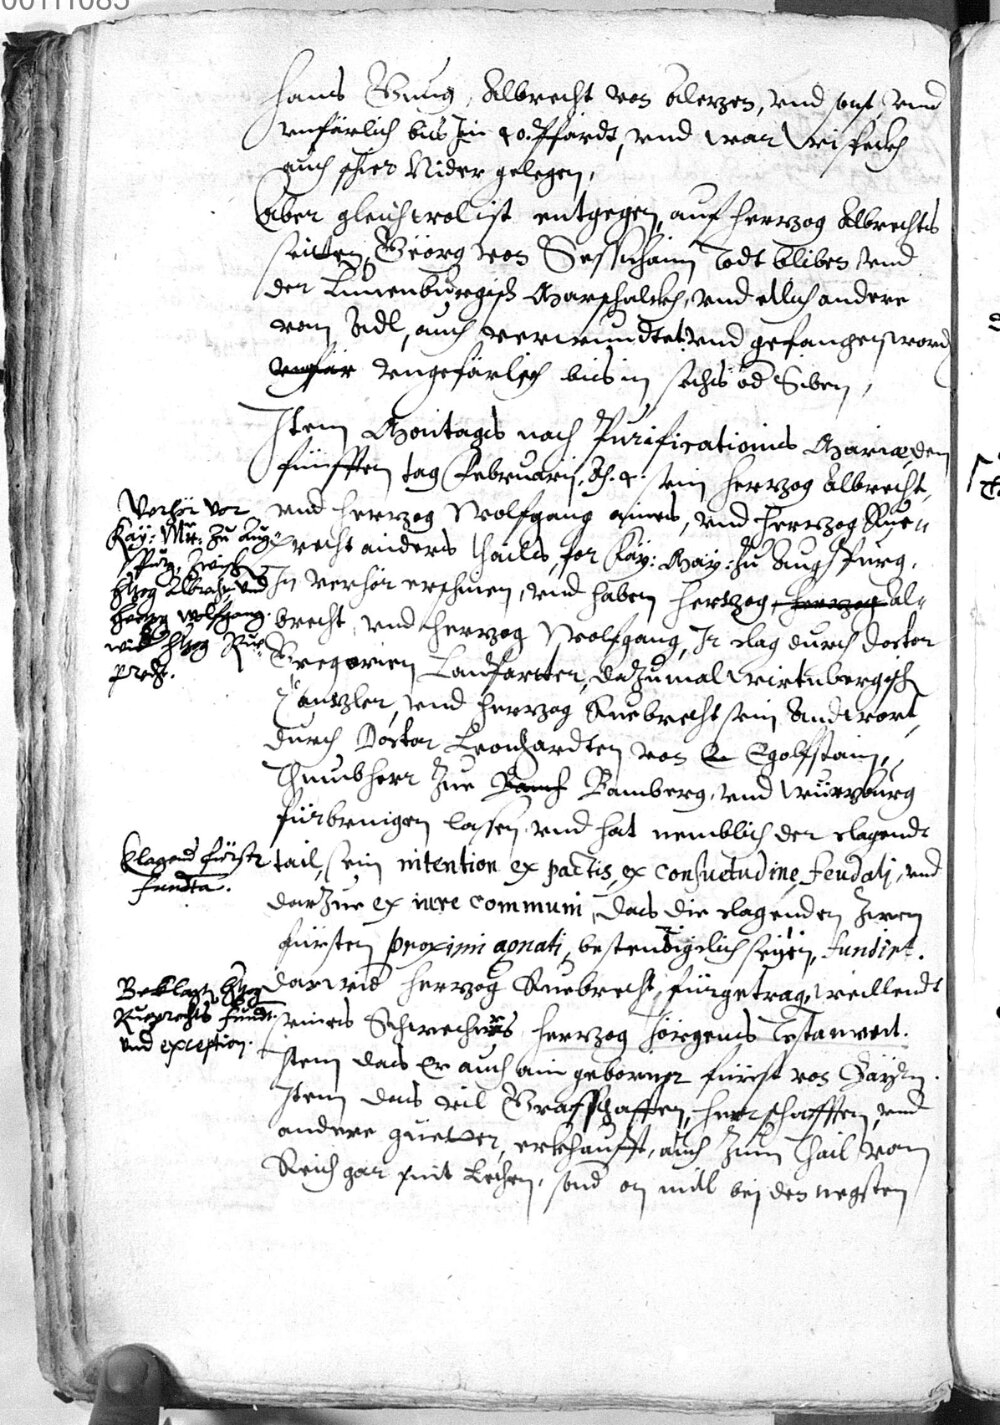 00111083
Hanns Georg, Albrecht von Alerzen, vnd sonst, vnd
vnfärlich bis In 40. Pferdt, vnd war Wispeckh
auch schier Nider gelegen,
Aber gleichwol ist entgegen, auf herrzog Albrechts
seitten, Geörg von Sessnhaim Todt bliben vnd
der Lunenburgisch Marschalckh, vnd etlich andere
vom Adl, auch verwundtet vnd gefangen word
vngefärlich bis in sechs od Siben,
Item Montags nach Purificationis Mariæ, den
fünfften tag Februarij, A. 4. sein herrzog Albrecht,
vnd herrzog Wolfgang ains, vnd herrzog Rue-
precht anders thails, for Kay: May: zu Augspurg,
In verhör erschinen, vnd haben hertzog herrzog Al-
brecht, vnd herrzog Wolfgang, Ir clag durch doctor
Gregorien Lamparter, dazumal Wirtnbergisch
Canntzler, vnd herrzog Ruebrecht sein Andtwort,
durch Doctor Leonhardten von E Egolfstain,
Thumbherr Zue Bamb Bamberg, vnd Wurzburg
fürbringen lassen, vnd hat nemblich der clagendt
tail, sein intention ex pactis, ex consuetudine, feudalj, vnd
darZue ex iure communi, das die clagenden Zwen
fürsten proximi agnati, bestendigclich seyen, fundirt.
darwid herrzog Ruebrecht, fürgetrag, weillendt
seines Schwechers herrzog Jörgens Testament.
Item das Er auch ain geborner fürst von Bayrn.
Item das vil Grafschafften, herrschafften, vnd
andere güetter, erkhaufft, auch zum thail vom
Reich gar nit Lechen, sond on mitl bej den negsten
Verhör vor
Kay: Mt: zu Aug-
spurg, zwischen
Hzog Albrecht vnd
Herzog Wolfgang.
wid Hzog Rue-
precht.
Klagend fürst
fundta.
Beklagts Hzog
Rueprechts fundt.
vnd exception.